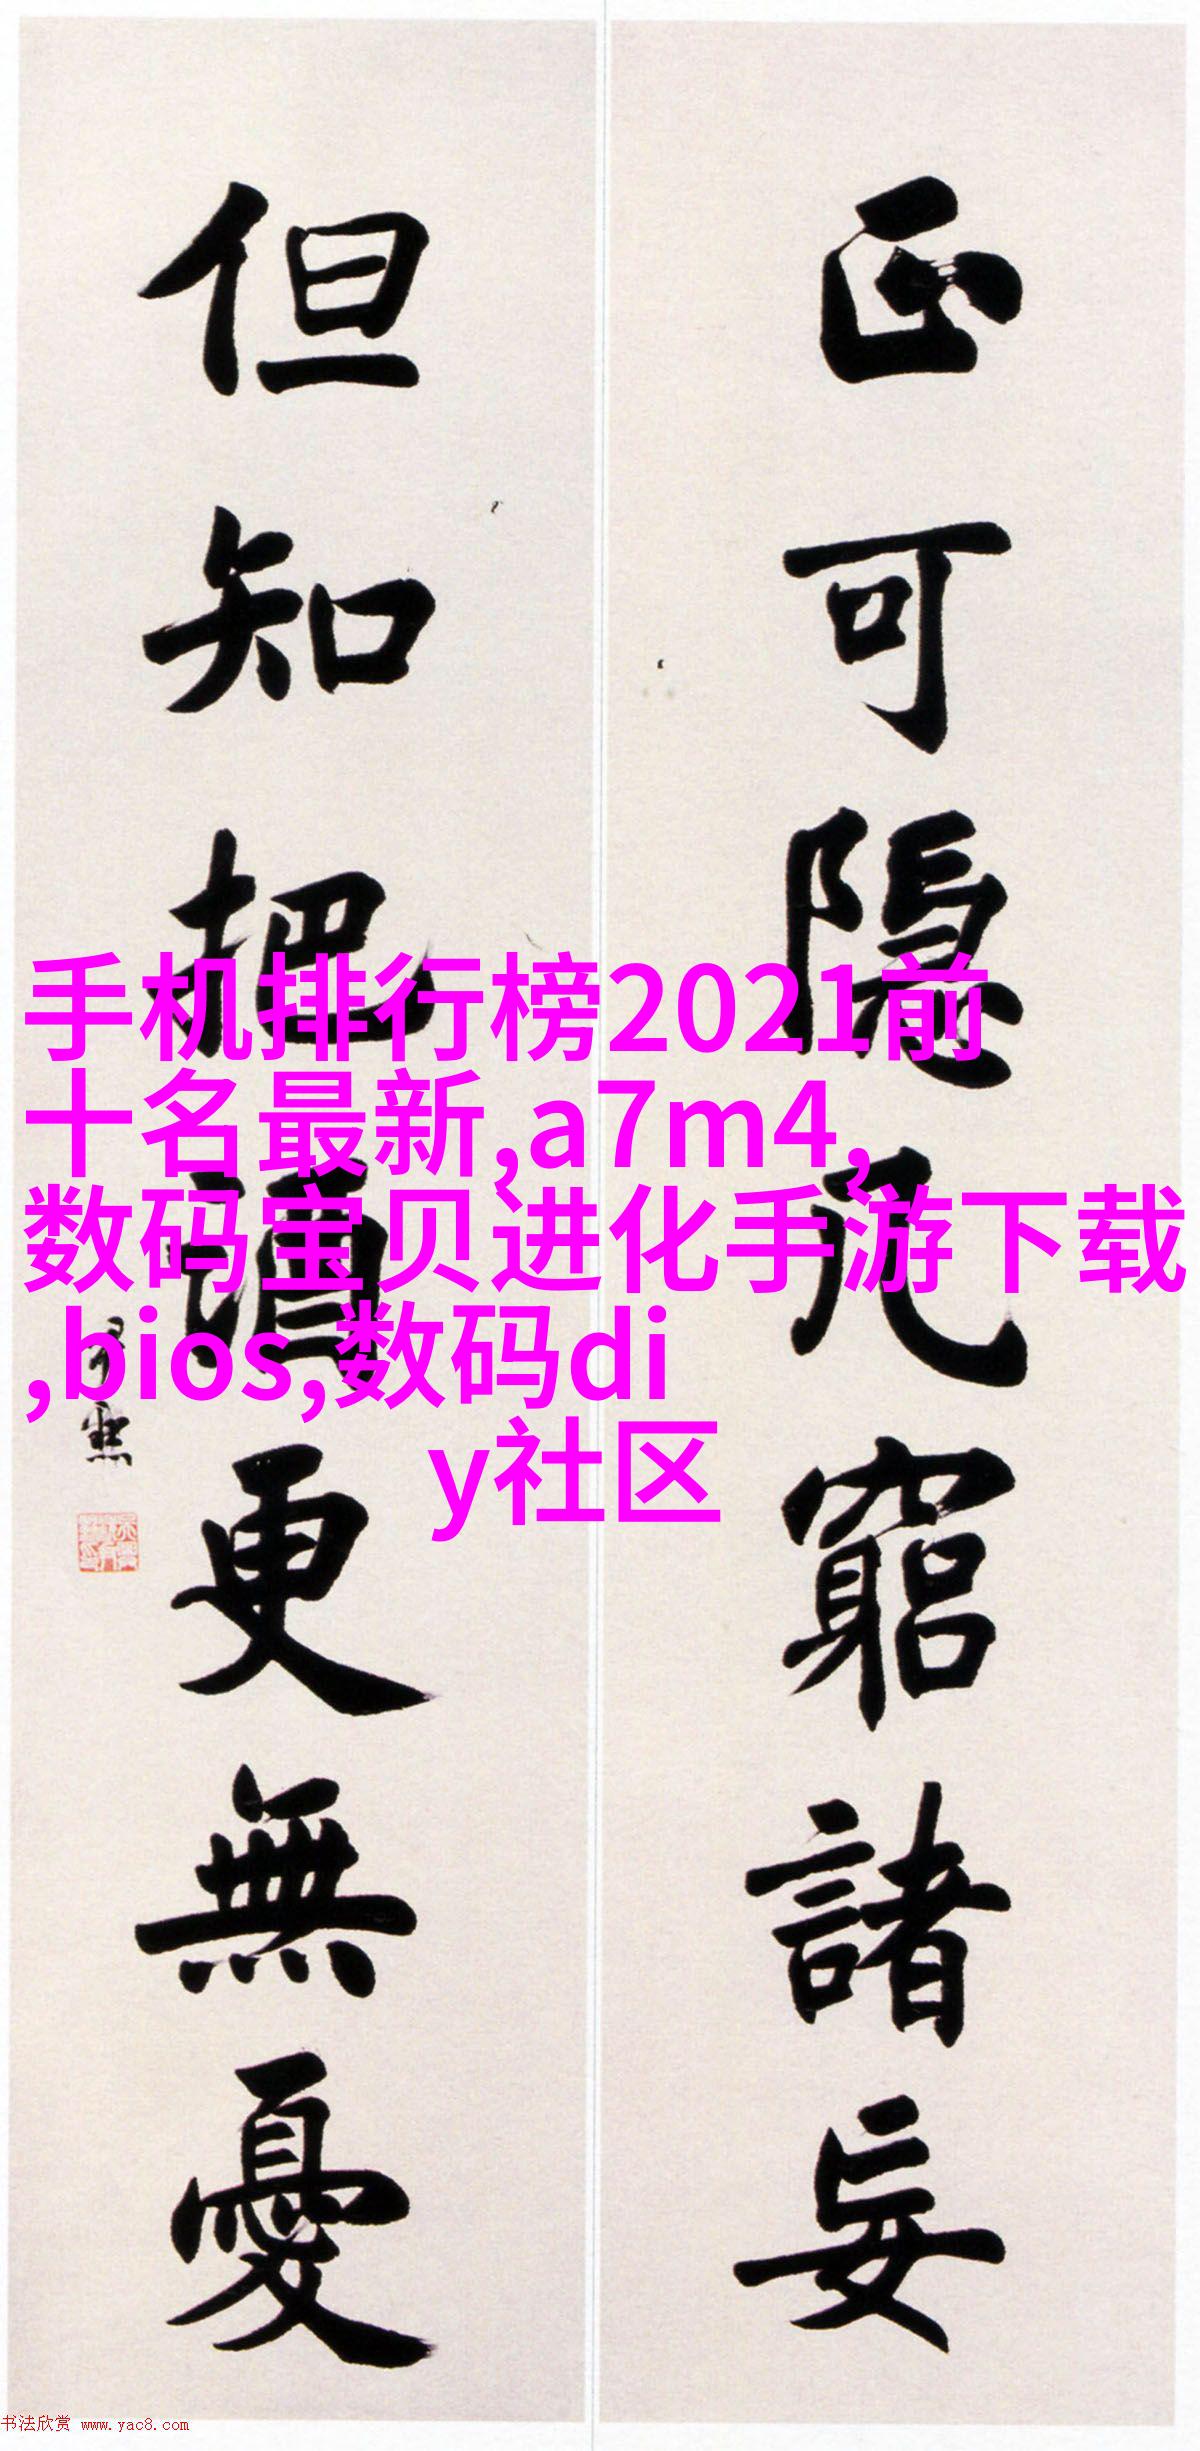 正可隱几窮諸妄
但知把酒更無憂
手机排行榜2021前
十名最新,a7m4,
数码宝贝进化手游下载
,bios,数码di
y社区
书法欣赏 www.yac8.com